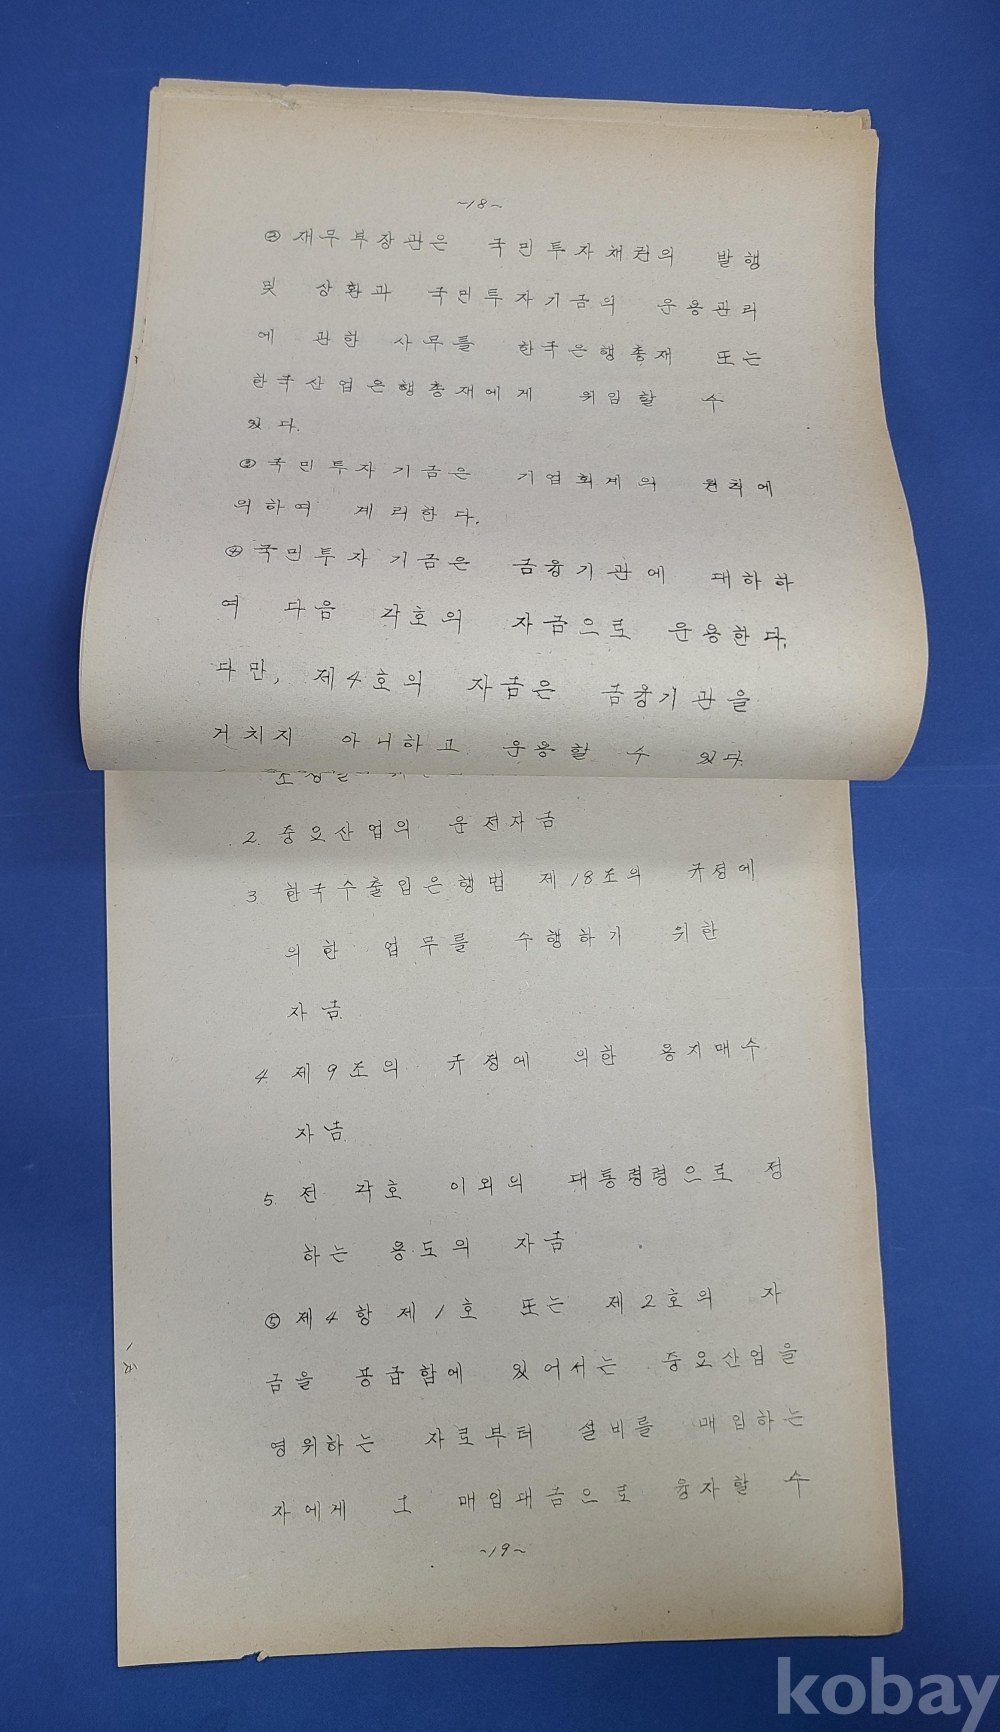 ~18~
② 재무부장관은 국민투자채권의 발행
및 상환과 국민투자기금의 운용관리
에 관한 사무를 한국은행총재 또는
한국산업은행총재에게 위임할 수
있다.
③ 국민투자기금은 기업회계의 원칙에
의하여 계리한다.
④ 국민투자기금은 금융기관에 대하하
여 다음 각호의 자금으로 운용한다.
다만, 제4호의 자금은 금융기관을
거치지 아니하고 운용할 수 있다.
2. 중요산업의 운전자금
3 한국수출입은행법 제18조의 규정에
의한 업무를 수행하기 위한
자금.
4. 제9조의 규정에 의한 용지매수
자금.
5. 전 각호 이외의 대통령령으로 정
하는 용도의 자금
⑤ 제4항 제1호 또는 제2호의 자
금을 공급함에 있어서는 중요산업을
영위하는 자로부터 설비를 매입하는
자에게 그 매입대금으로 융자할 수
~19~
kobay